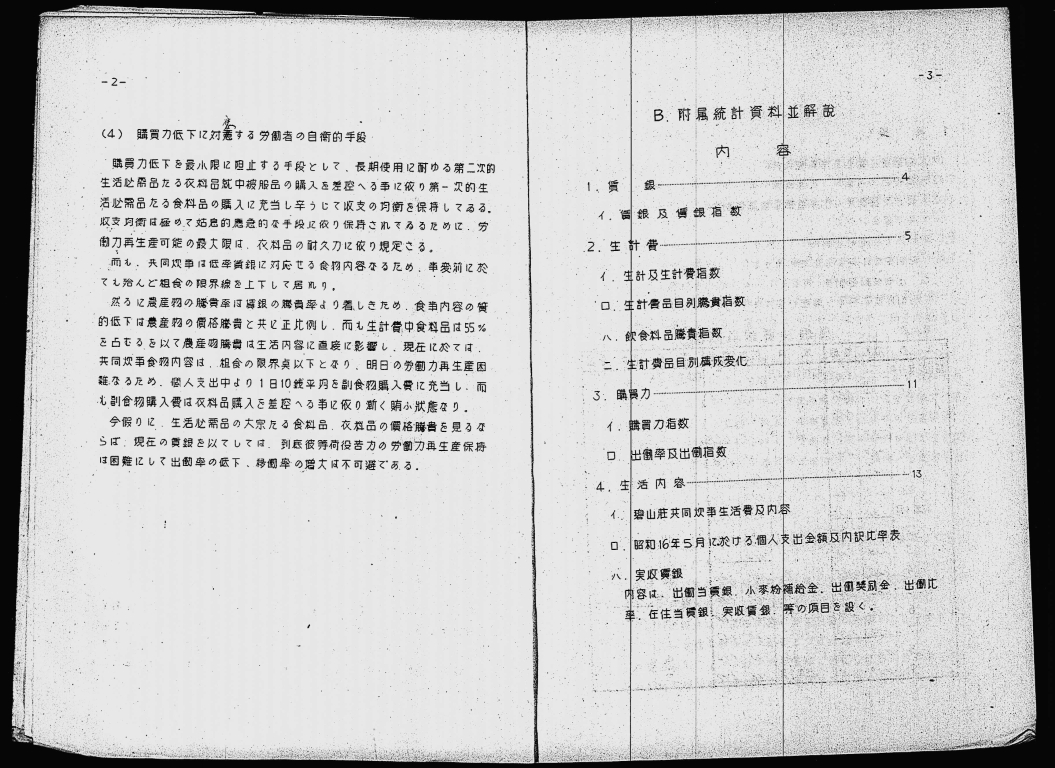 -2-
(4) 購買力低下に対應する労働者の自衛的手段
購買力低下を最小限に阻止する手段として、長期使用に耐ゆる第二次的
生活必需品たる衣料品就中被服品の購入を差控へる事に依り第一次的生
活必需品たる食料品の購入に充当し辛うじて収支の均衡を保持してゐる。
収支均衡は極めて姑息的應急的な手段に依り保持されてゐるために、労
働力再生産可能の最大限は、衣料品の耐久力に依り規定さる。
而も、共同炊事は低率賃銀に対応せる食物内容なるため、事変前に於
ても殆んど粗食の限界線を上下して居れり。
然るに農産物の騰貴率は賃銀の騰貴率より着しきため、食事内容の質
的低下は農産物の價格騰貴と共に正比例し、而も生計費中食料品は55%
を占むるを以て農産物騰貴は生活内容に直接に影響し、現在に於ては、
共同炊事食物内容は、粗食の限界点以下となり、明日の労働力再生産困
難なるため、個人支出中より1日10銭平均を副食物購入費に充当し、而
も副食物購入費は衣料品購入を差控へる事に依り漸く賄ふ状態なり。
今假りに、生活必需品の大宗たる食料品、衣料品の價格騰貴を見るな
らば、現在の賃銀を以てしては、到底彼等荷役苦力の労働力再生産保持
は困難にして出働率の低下、移働率の増大は不可避である。
-3-
B. 附属統計資料並解説
内 容
1. 賃 銀 4
イ. 賃銀及賃銀指数
2. 生計費 5
イ. 生計及生計費指数
ロ. 生計費品目別騰貴指数
ハ. 飲食料品騰貴指数
ニ. 生計費品目別構成変化
3. 購買力 11
イ. 購買力指数
ロ. 出働率及出働指数
4. 生活内容 13
イ. 碧山荘共同炊事生活費及内容
ロ. 昭和16年5月に於ける個人支出金額及内訳比率表
ハ. 実収賃銀
内容は、出働当賃銀、小麥粉補給金、出働奨励金、出働比
率、在住当賃銀、実収賃銀、等の項目を設く。